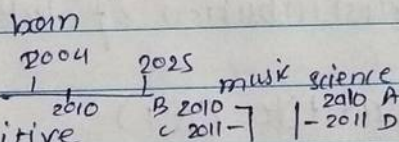 born
2004 2025
music science
2010 B 2010 2010 A
itive C 2011- - 2011 D